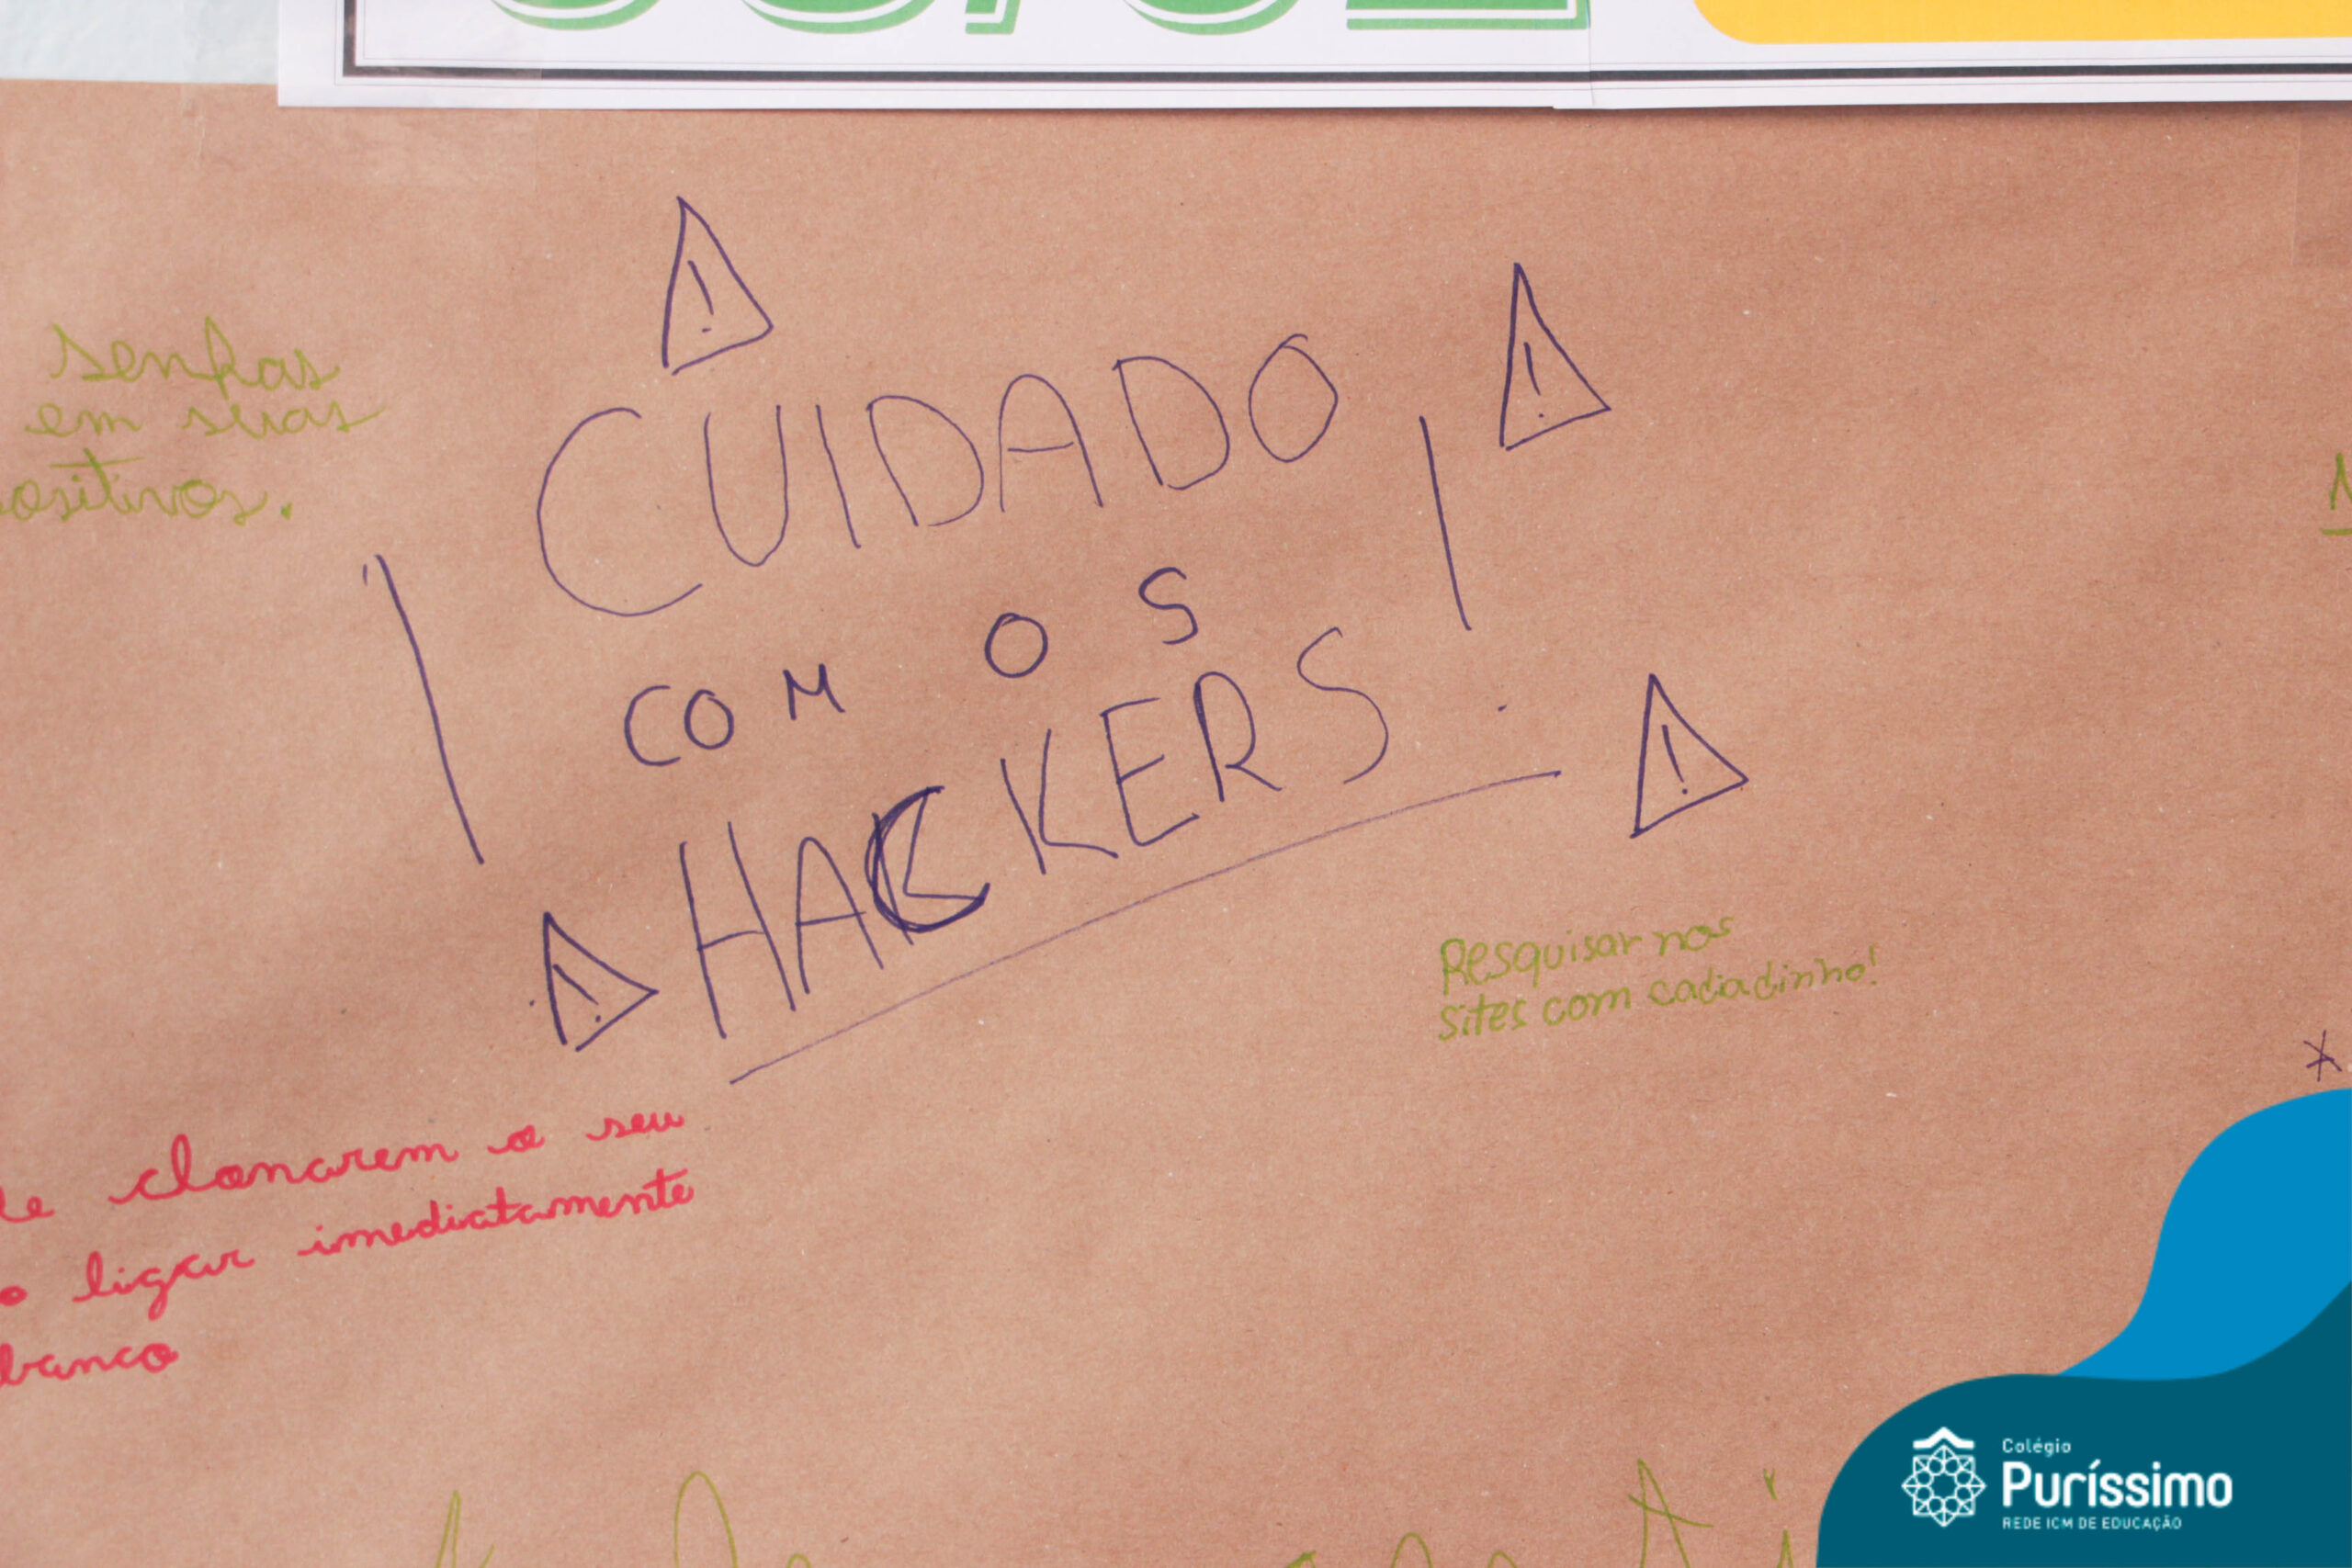 senhas
em suas
ositivos.
CUIDADO
COM OS
HACKERS!
Pesquisar nos
sites com cadiadinho!
de clonarem o seu
ligar imediatamente
banco
Colégio
Puríssimo
REDE ICM DE EDUCAÇÃO